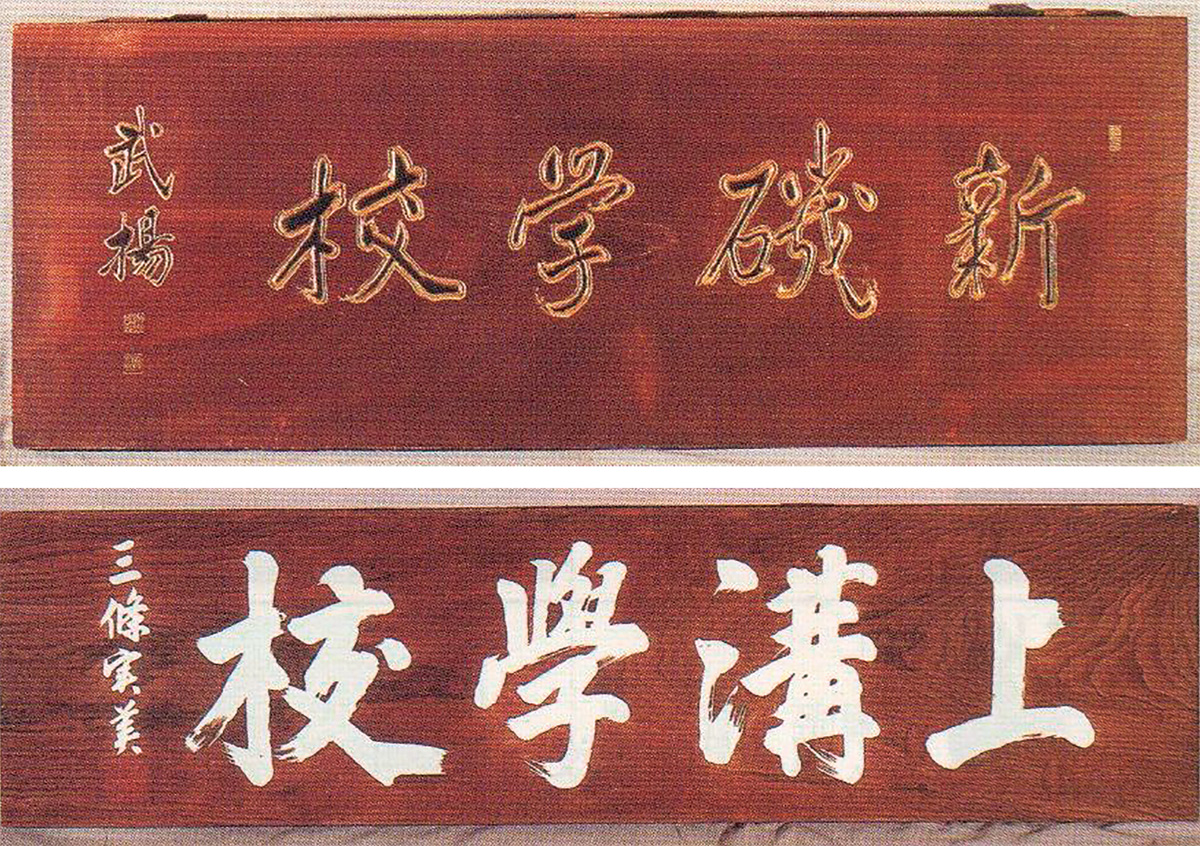 新磯学校
武揚
上溝學校
三條実美